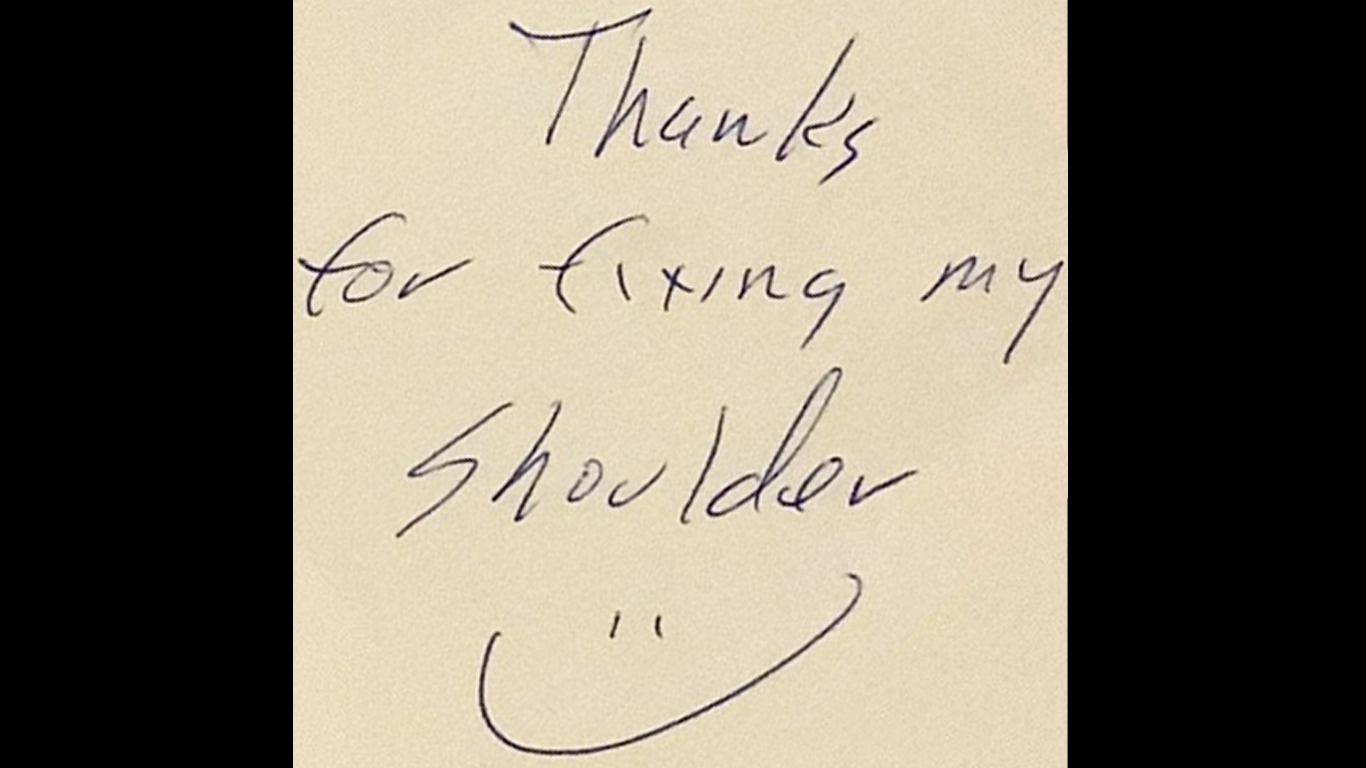 Thanks
for fixing my
shoulder